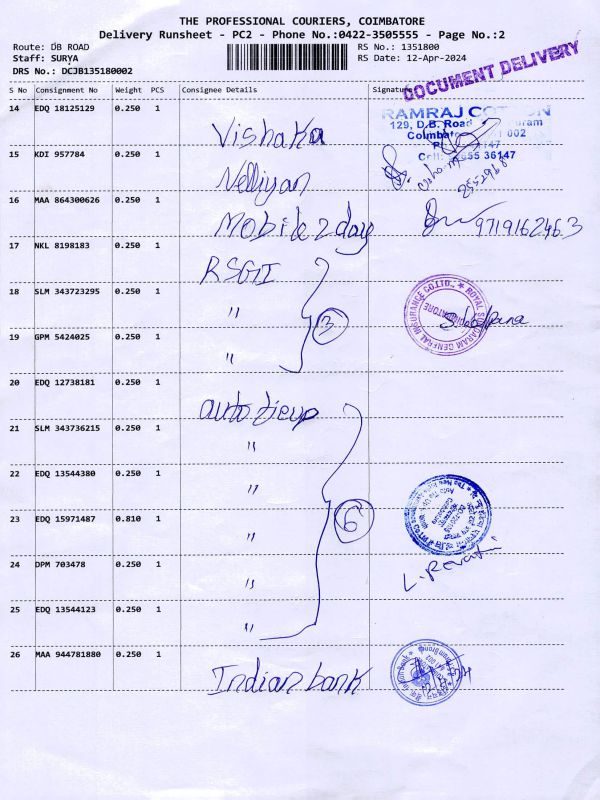 THE PROFESSIONAL COURIERS, COIMBATORE
Delivery Runsheet - PC2 - Phone No.:0422-3505555 - Page No.:2
Route: DB ROAD
Staff: SURYA
DRS No.: DCJB135180002
RS No.: 1351800
RS Date: 12-Apr-2024
DOCUMENT DELIVERY
S No Consignment No Weight PCS Consignee Details Signature
14 EDQ 18125129 0.250 1 Vishaka
RAMRAJ COTTON
129, D.B. Road
002
36147
15 KDI 957784 0.250 1 Nelliyan
16 MAA 864300626 0.250 1 Mobile 2 day 9719162463
17 NKL 8198183 0.250 1 RSGI
18 SLM 343723295 0.250 1 "
3
ROYAL SUNDARAM GENERAL INSURANCE CO.LTD.,
COIMBATORE
19 GPM 5424025 0.250 1 "
20 EDQ 12738181 0.250 1 auto tieup
21 SLM 343736215 0.250 1 "
22 EDQ 13544380 0.250 1 "
6
23 EDQ 15971487 0.810 1 "
24 DPM 703478 0.250 1 "
L. Revathi
25 EDQ 13544123 0.250 1 "
26 MAA 944781880 0.250 1 Indian bank